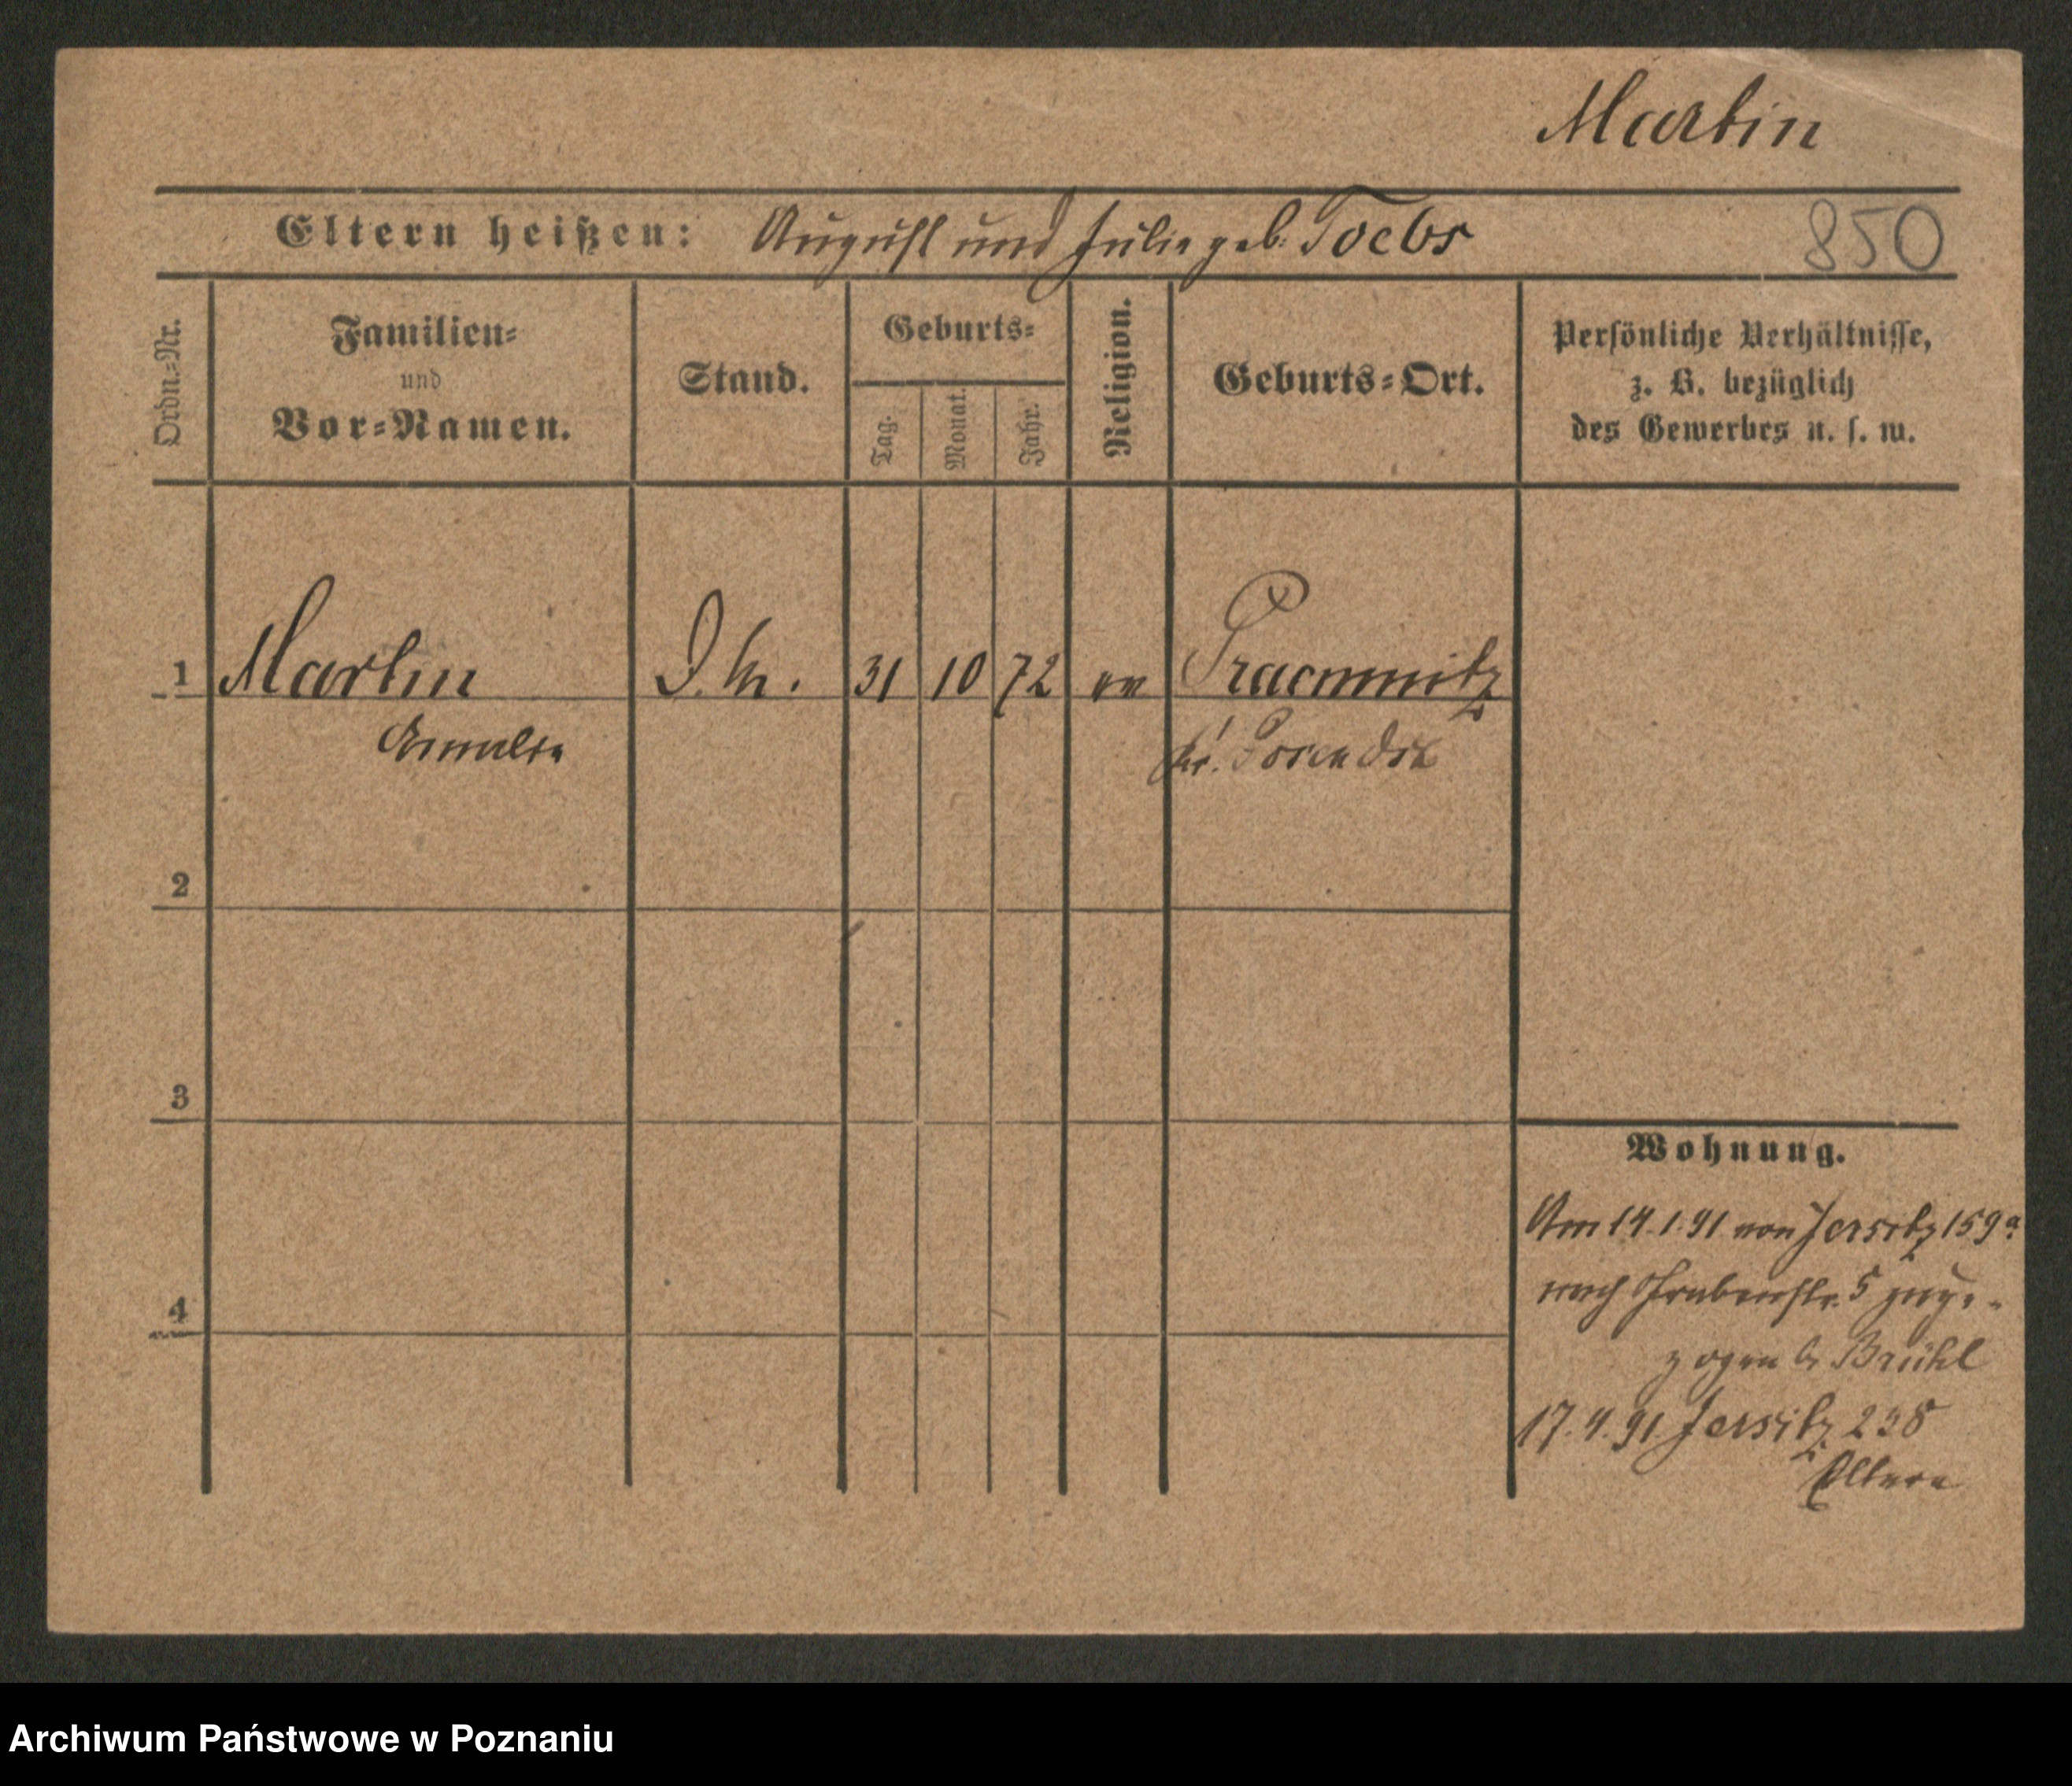 Martin
Eltern heißen: August und Julie geb. Toebs
850
Ordn.-Nr.
Familien-
und
Vor-Namen.
Stand.
Geburts-
Tag.
Monat.
Jahr.
Religion.
Geburts-Ort.
Persönliche Verhältnisse,
z. B. bezüglich
des Gewerbes u. s. w.
1 Martin 31 10 72 ev
Kr. Posen
2
3
4
Wohnung.
Am 14.1.91 von Jersitz 159a
nach 5 zuge-
zogen b. Brühl
17.4.91 Jersitz 238
Eltern
Archiwum Państwowe w Poznaniu